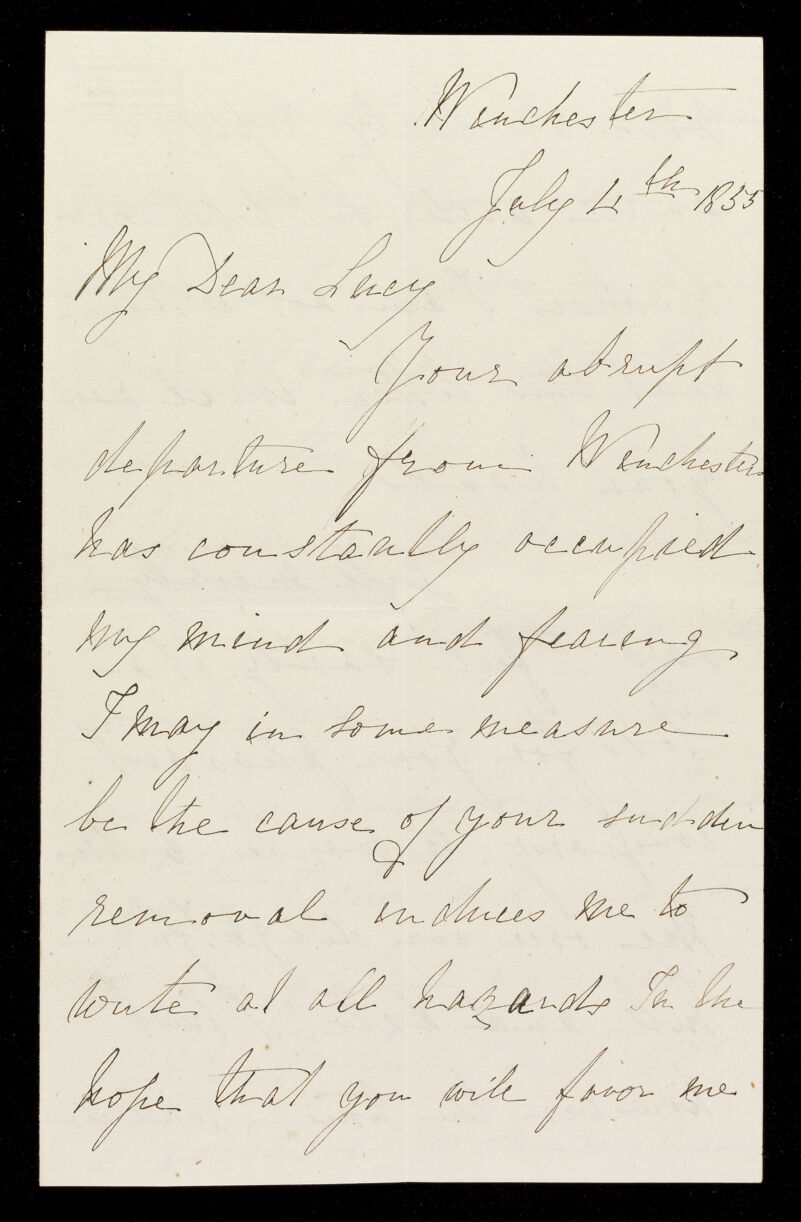 Winchester
July 4th 1855
My Dear Lucy
Your abrupt
departure from Winchester
has constantly occupied
my mind and fearing
I may in some measure
be the cause of your sudden
removal induces me to
write at all hazards In the
hope that you will favor me